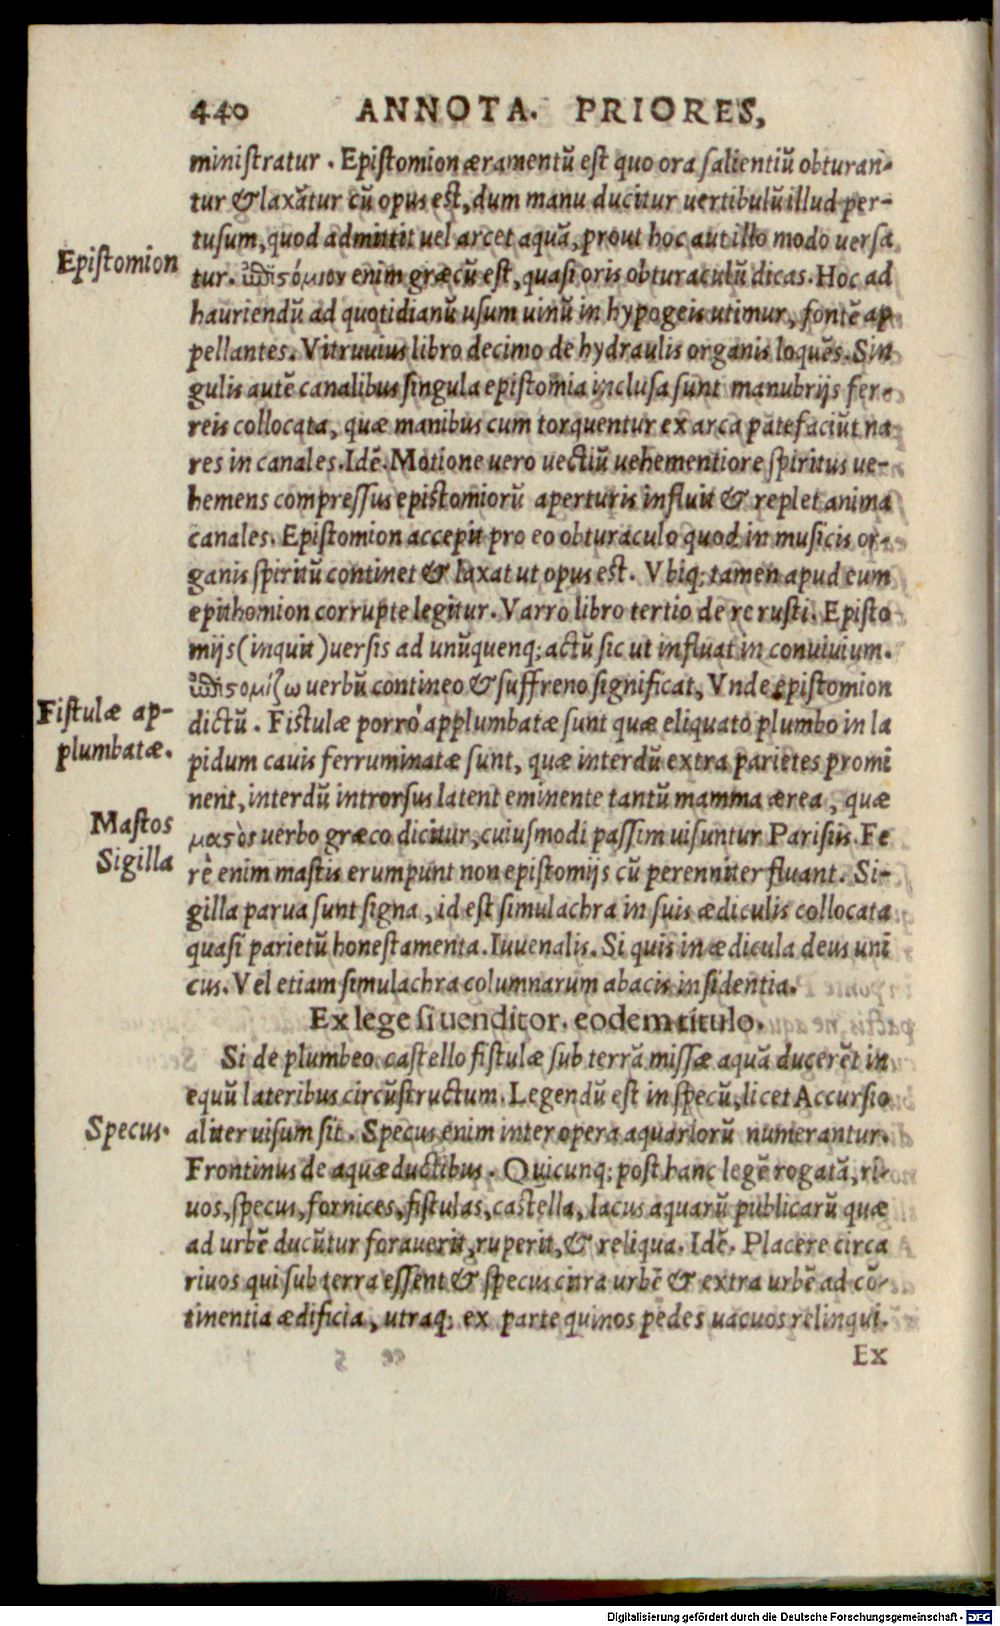 440 ANNOTA. PRIORES,
ministratur. Epistomion æramentũ est quo ora salientiũ obturan-
tur & laxãtur cũ opus est, dum manu ducitur uertibulũ illud per-
tusum, quod admittit uel arcet aquã, prout hoc aut illo modo uersa
Epistomion
tur. ἐπιστόμιον enim græcũ est, quasi oris obturaculũ dicas. Hoc ad
hauriendũ ad quotidianũ usum uinũ in hypogeis utimur, fontẽ ap
pellantes. Vitruuius libro decimo de hydraulis organis loquẽs. Sin
gulis autẽ canalibus singula epistomia inclusa sunt manubrijs fer-
reis collocata, quæ manibus cum torquentur ex arca patefaciũt na
res in canales. Idẽ. Motione uero uectiũ uehementiore spiritus ue-
hemens compressus epistomiorũ aperturis influit & replet anima
canales. Epistomion accepit pro eo obturaculo quod in musicis or-
ganis spiritũ continet & laxat ut opus est. Vbiq; tamen apud eum
epithomion corrupte legitur. Varro libro tertio de re rusti. Episto
mijs (inquit) uersis ad unũquenq; actũ sic ut influat in conuiuium.
ἐπιστομίζω uerbũ contineo & suffreno significat, Vnde epistomion
Fistulæ ap-
plumbatæ.
dictũ. Fistulæ porrò applumbatæ sunt quæ eliquato plumbo in la
pidum cauis ferruminatæ sunt, quæ interdũ extra parietes promi
nent, interdũ introrsus latent eminente tantũ mamma ærea, quæ
Mastos
μαστὸς uerbo græco dicitur, cuiusmodi passim uisuntur Parisiis. Fe
Sigilla
rè enim mastis erumpunt non epistomijs cũ perenniter fluant. Si-
gilla parua sunt signa, id est simulachra in suis ædiculis collocata
quasi parietũ honestamenta. Iuuenalis. Si quis in ædicula deus uni
cus. Vel etiam simulachra columnarum abacis insidentia.
Ex lege si uenditor. eodem titulo.
Si de plumbeo castello fistulæ sub terrã missæ aquã ducerẽt in
equũ lateribus circũstructum. Legendũ est in specũ, licet Accursio
Specus.
aliter uisum sit. Specus enim inter opera aquariorũ numerantur.
Frontinus de aquæductibus. Quicunq; post hanc legẽ rogatã, ri-
uos, specus, fornices, fistulas, castella, lacus aquarũ publicarũ quæ
ad urbẽ ducũtur forauerit, ruperit, & reliqua. Idẽ. Placere circa
riuos qui sub terra essent & specus citra urbẽ & extra urbẽ ad cõ-
tinentia ædificia, utraq; ex parte quinos pedes uacuos relinqui.
Ex
Digitalisierung gefördert durch die Deutsche Forschungsgemeinschaft - DFG